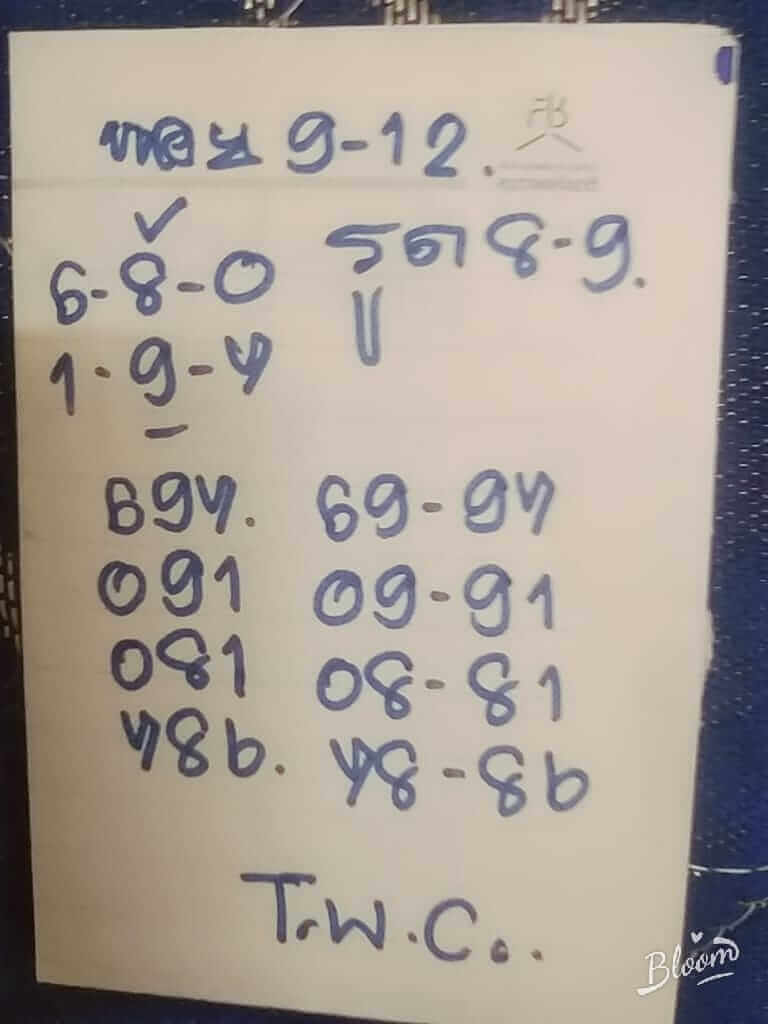 9-12.
FB
✓
6-8-0 รูด 8-9.
1-9-7
697. 69-97
091 09-91
081 08-81
786. 78-86
T.W.C..
Bloom